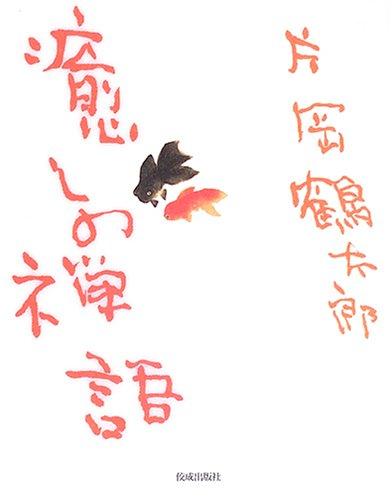 片岡鶴太郎
癒しの禅語
佼成出版社